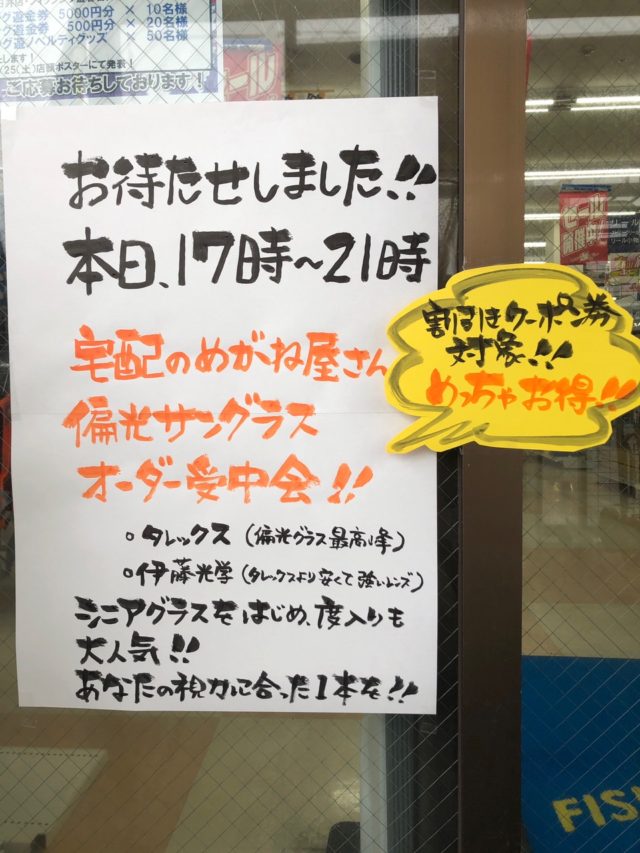 ク遊金券 5000円分 × 10名様
ク遊金券 500円分 × 20名様
ク遊ノベルティグッズ × 50名様
25(土)店頭ポスターにて発表!
ご応募お待ちしております!
お待たせしました、!!
本日、17時~21時
宅配のめがね屋さん
偏光サングラス
オーダー受中会!!
○タレックス(偏光グラス最高峰)
○伊藤光学(タレックスより安くて強いレンズ)
シニアグラスをはじめ、度入りも
大人気!!
あなたの視力に合った1本を!!
割引きクーポン券
対象!!
めっちゃお得!!
セール
開催中
FIS